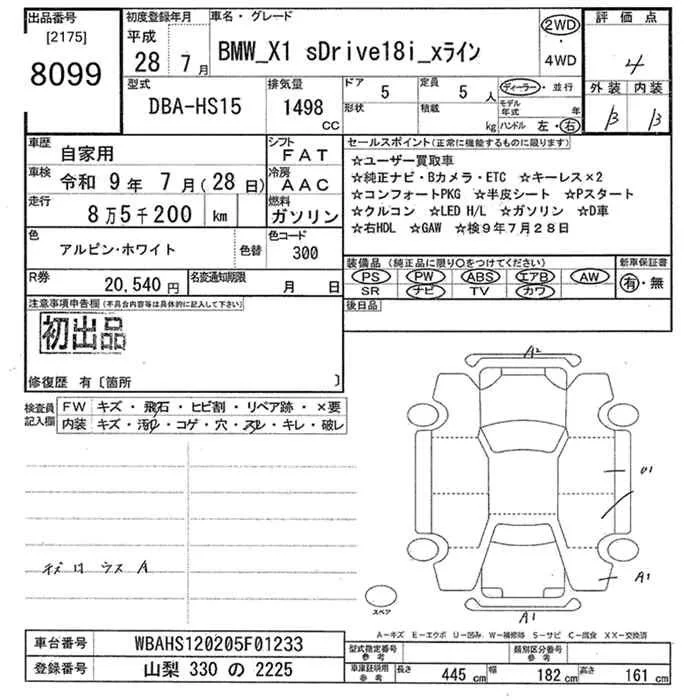 出品番号
[2175]
8099
初度登録年月
平成
28 7月
車名・グレード
BMW_X1 sDrive18i_xライン
2WD
・
4WD
評価点
4
外装 内装
B B
型式
DBA-HS15
排気量
1498
CC
ドア 5
形状
定員 5 人
積載 kg
ディーラー・並行
モデル年式 年
ハンドル 左・右
車歴
自家用
シフト
FAT
車検 令和 9年 7月(28日)
冷房
AAC
走行
8万5千200 km
燃料
ガソリン
色
アルピン・ホワイト
色替
色コード
300
R券
20,540円
名変通知期限
月 日
セールスポイント(正常に機能するものに限ります)
☆ユーザー買取車
☆純正ナビ・Bカメラ・ETC ☆キーレス×2
☆コンフォートPKG ☆半皮シート ☆Pスタート
☆クルコン ☆LED H/L ☆ガソリン ☆D車
☆右HDL ☆GAW ☆検9年7月28日
装備品(純正品に限り○をつけてください)
PS PW ABS エアB AW
SR ナビ TV カワ
新車保証書
有・無
後日品
注意事項申告欄(不具合内容等は具体的に記入して下さい)
初出品
修復歴 有〔箇所 〕
検査員
記入欄
FW キズ・飛石・ヒビ割・リペア跡・×要
内装 キズ・汚れ・コゲ・穴・スレ・キレ・破レ
A2
U1
A1
A1
スペア
A-キズ E-エクボ U-凹み W-補修跡 S-サビ C-腐食 XX-交換済
車台番号 WBAHS120205F01233
登録番号 山梨 330 の 2225
型式指定番号
参考
類別区分番号
参考
車庫証明用
参考
長さ 445cm 幅 182cm 高さ 161cm